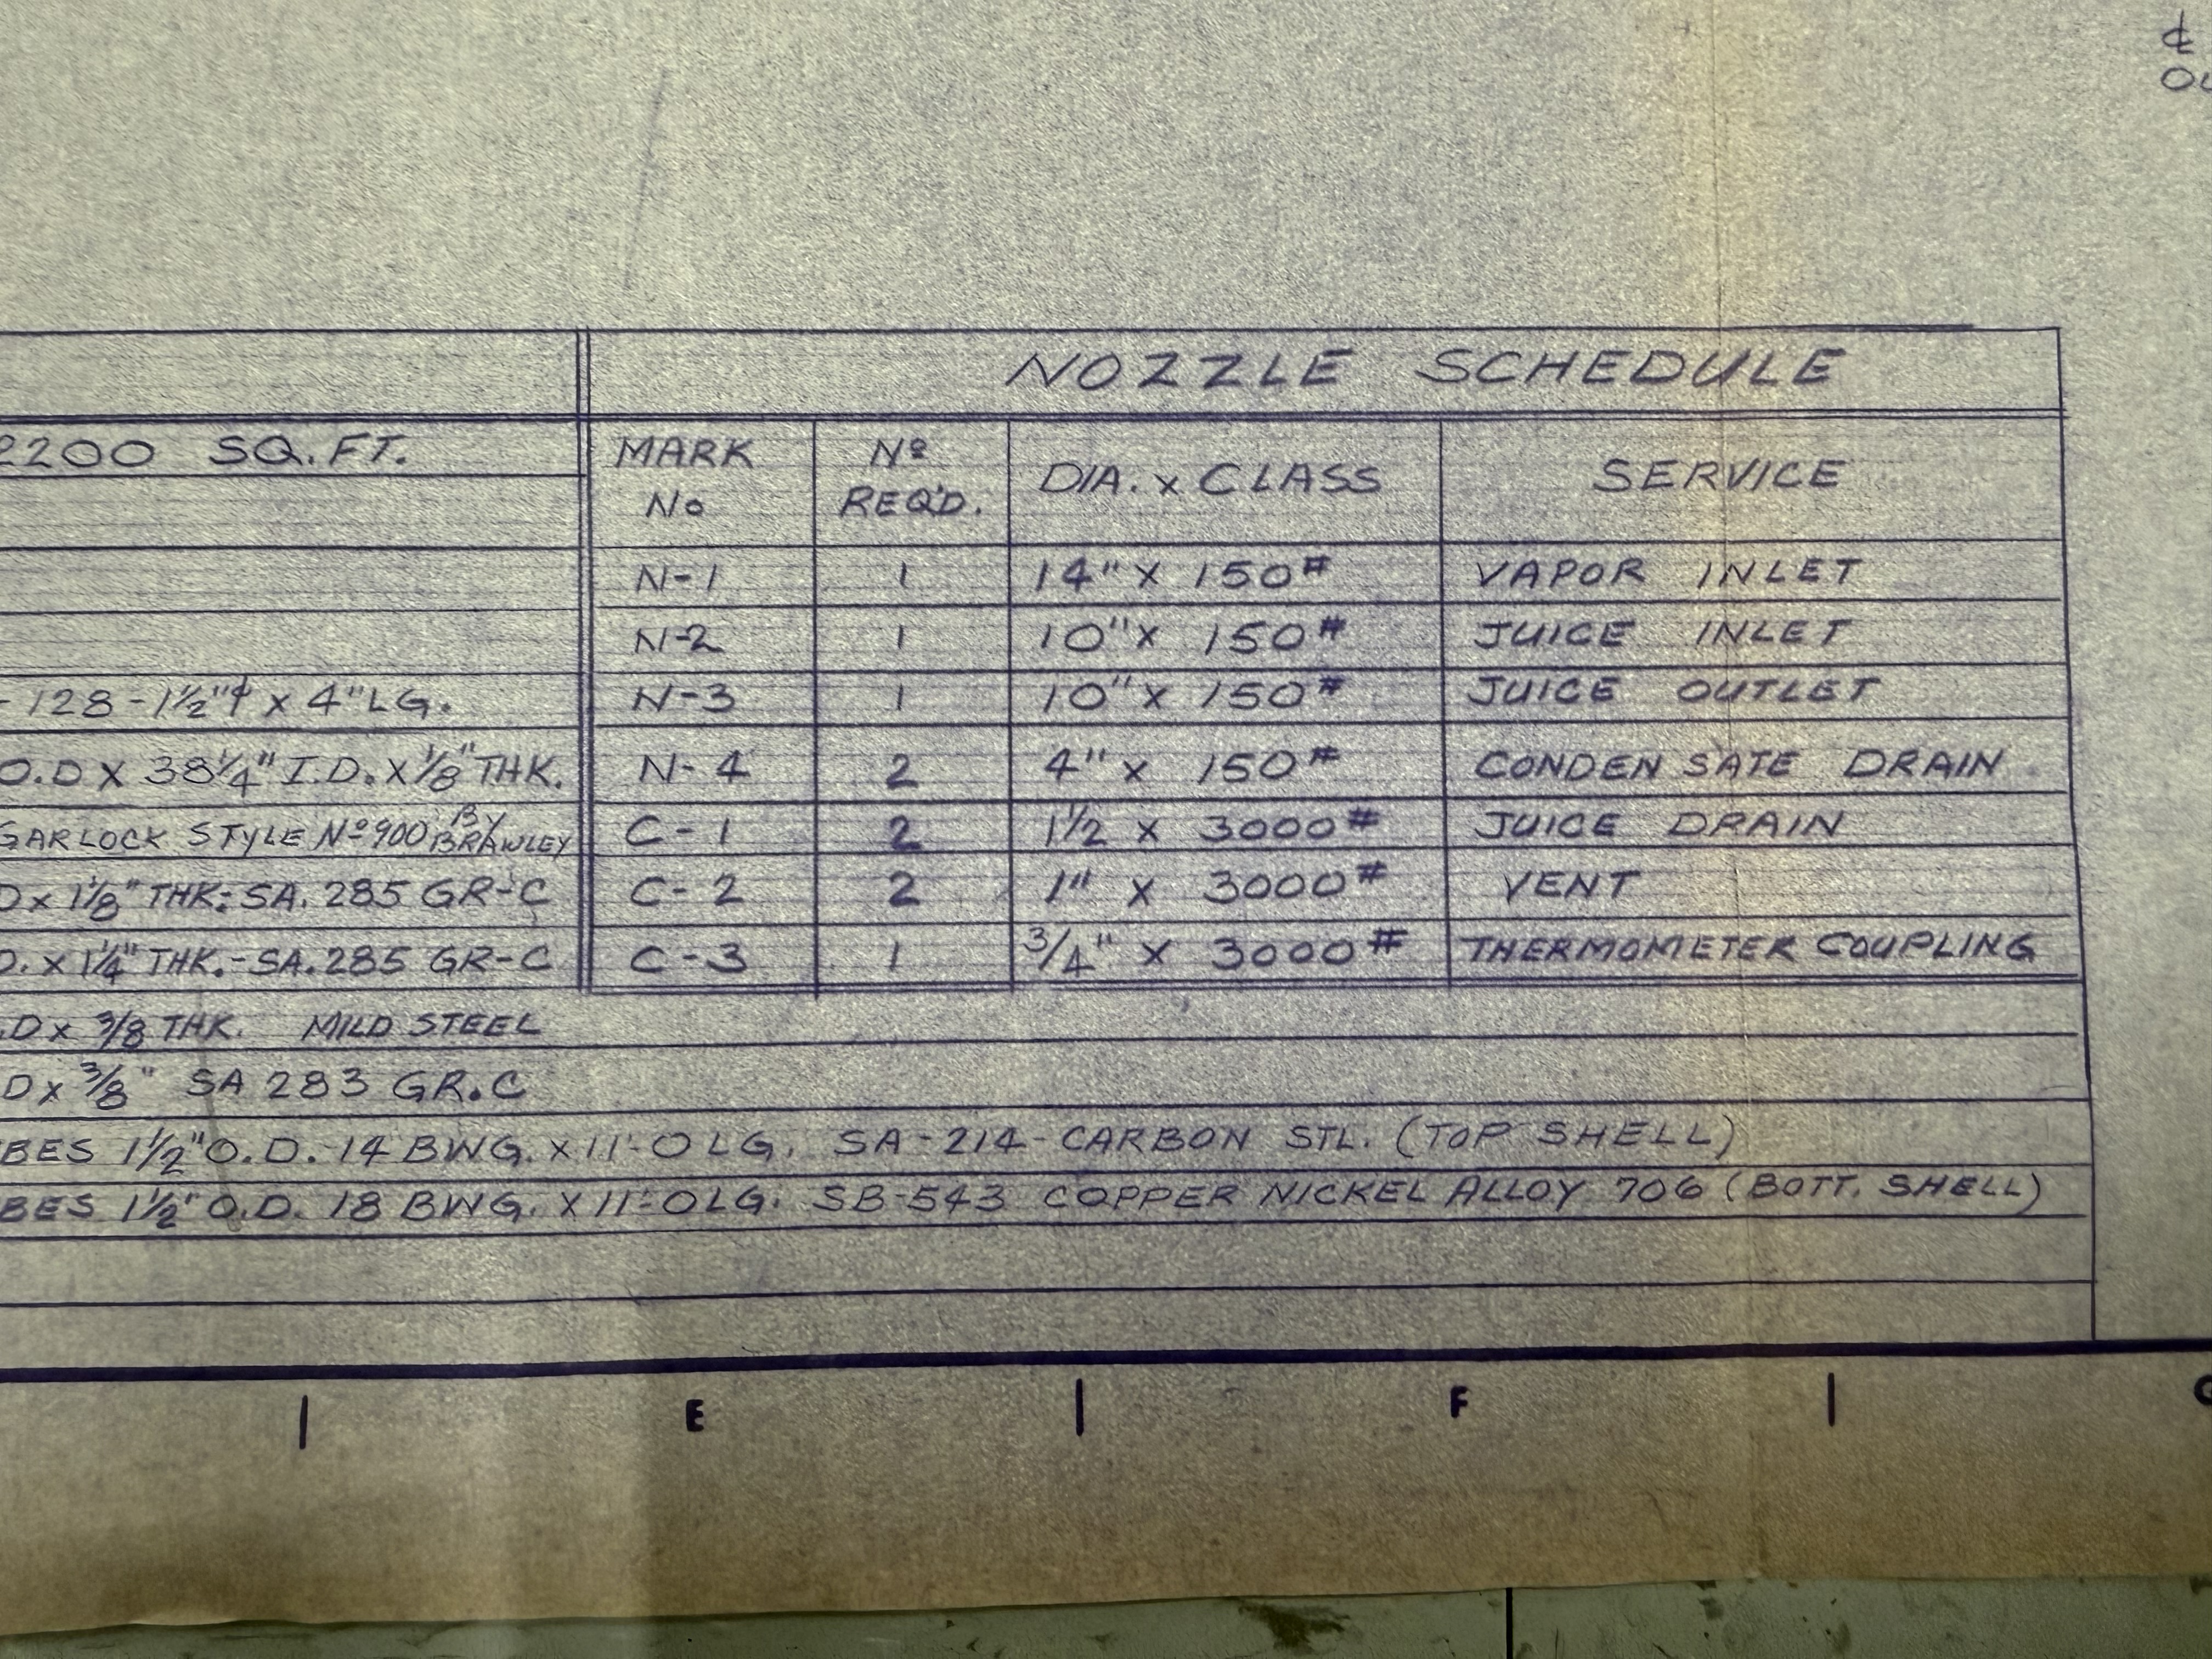 ¢
NOZZLE SCHEDULE
2200 SQ. FT.
MARK No
Nº REQ'D.
DIA. x CLASS
SERVICE
N-1 1 14" x 150# VAPOR INLET
N-2 1 10" x 150# JUICE INLET
- 128 - 1½"φ x 4" LG. N-3 1 10" x 150# JUICE OUTLET
O.D x 38¼" I.D. x ⅛" THK. N-4 2 4" x 150# CONDENSATE DRAIN
GARLOCK STYLE Nº 900 BY BRAWLEY C-1 2 1½ x 3000# JUICE DRAIN
D x 1⅛" THK: SA. 285 GR-C C-2 2 1" x 3000# VENT
D. x 1¼" THK.-SA. 285 GR-C C-3 1 3/4" x 3000# THERMOMETER COUPLING
.D x 3/8 THK. MILD STEEL
D x 3/8" SA 283 GR.C
BES 1½" O.D. 14 BWG. x 11'-0 LG. SA-214-CARBON STL. (TOP SHELL)
BES 1½" O.D. 18 BWG. x 11'-0 LG. SB-543 COPPER NICKEL ALLOY 706 (BOTT. SHELL)
E F